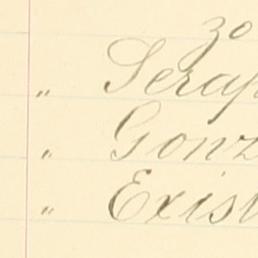 zo
" Serap
" Gonz
" Exis